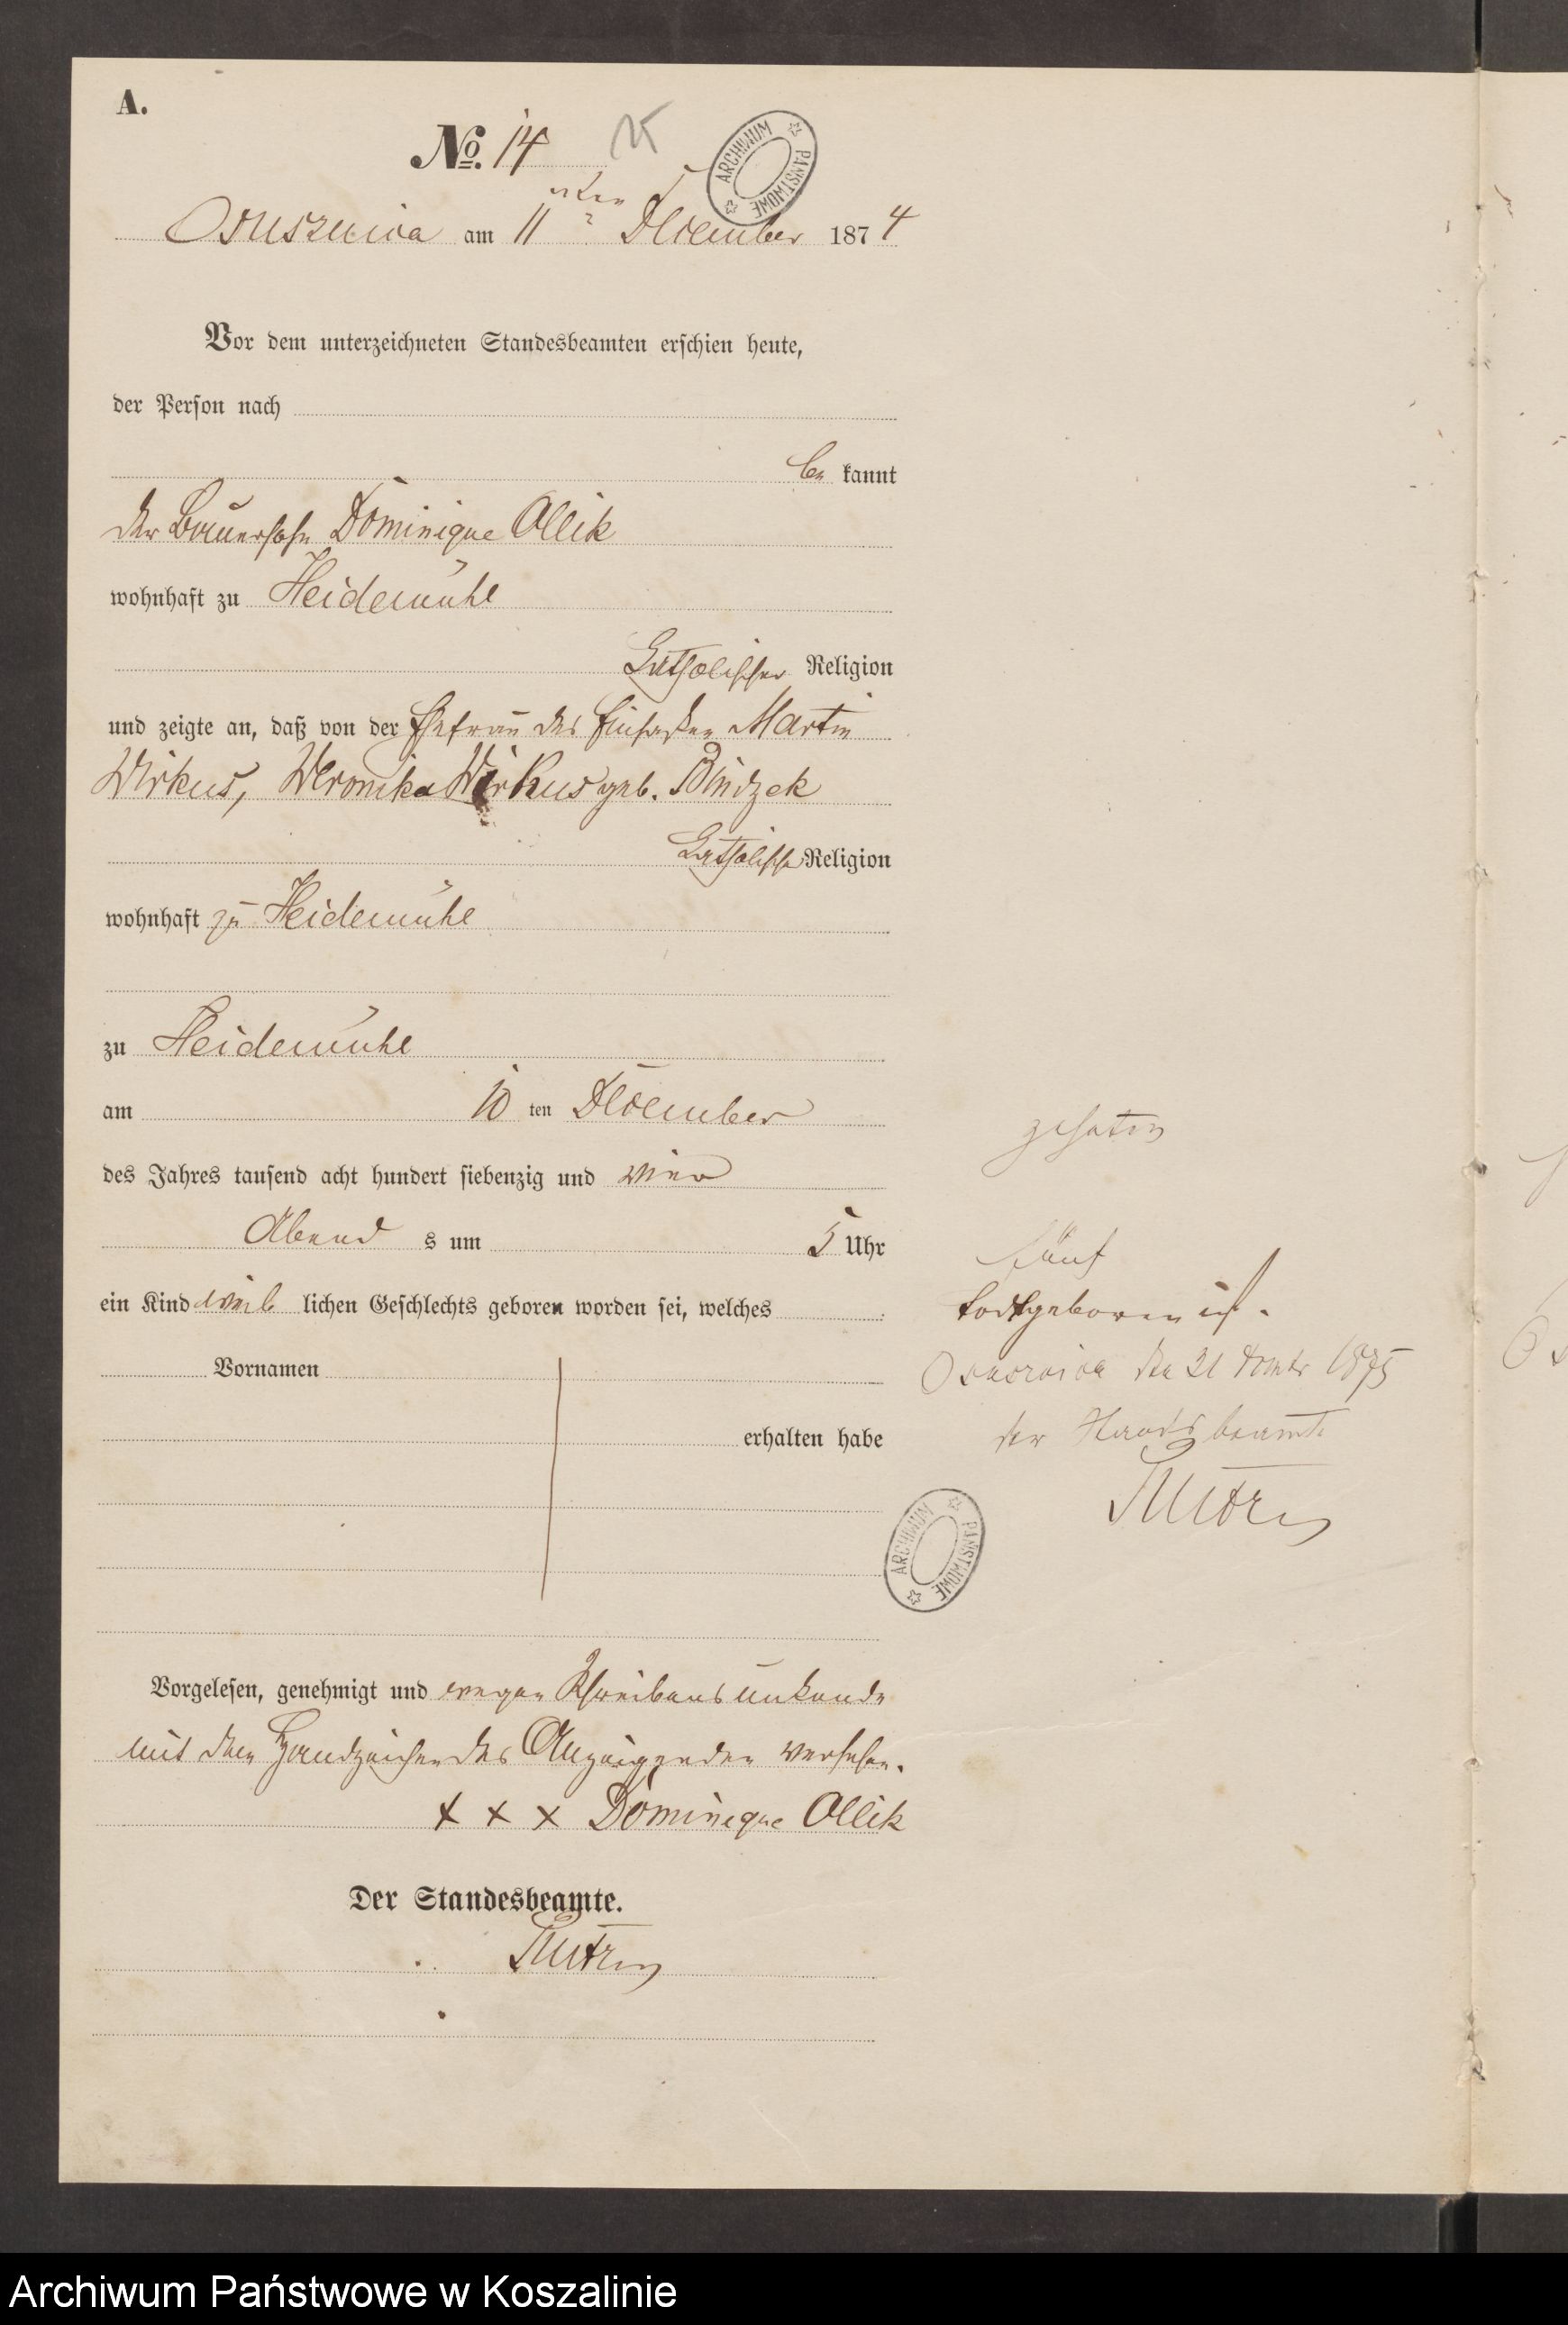 A.
No. 14
ARCHIWUM PAŃSTWOWE
Osusznica am 11 ten December 1874
Vor dem unterzeichneten Standesbeamten erschien heute,
der Person nach
be kannt
der Bauersohn Dominique Ollik
wohnhaft zu Heidemühl
katholischer Religion
und zeigte an, daß von der Ehefrau des Einsassen Martin
Wirkus, Weronika Wirkus geb. Bindzek
katholische Religion
wohnhaft zu Heidemühl
zu Heidemühl
am 10 ten December
des Jahres tausend acht hundert siebenzig und vier
Abend s um 5 Uhr
fünf
ein Kind weib lichen Geschlechts geboren worden sei, welches
todtgeboren ist.
Vornamen
Osusznica den 31 1875
erhalten habe
der Standesbeamte
ARCHIWUM PAŃSTWOWE
Vorgelesen, genehmigt und wegen Schreibensunkunde
mit dem Handzeichen des Anzeigenden versehen.
+ + + Dominique Ollik
Der Standesbeamte.
Archiwum Państwowe w Koszalinie